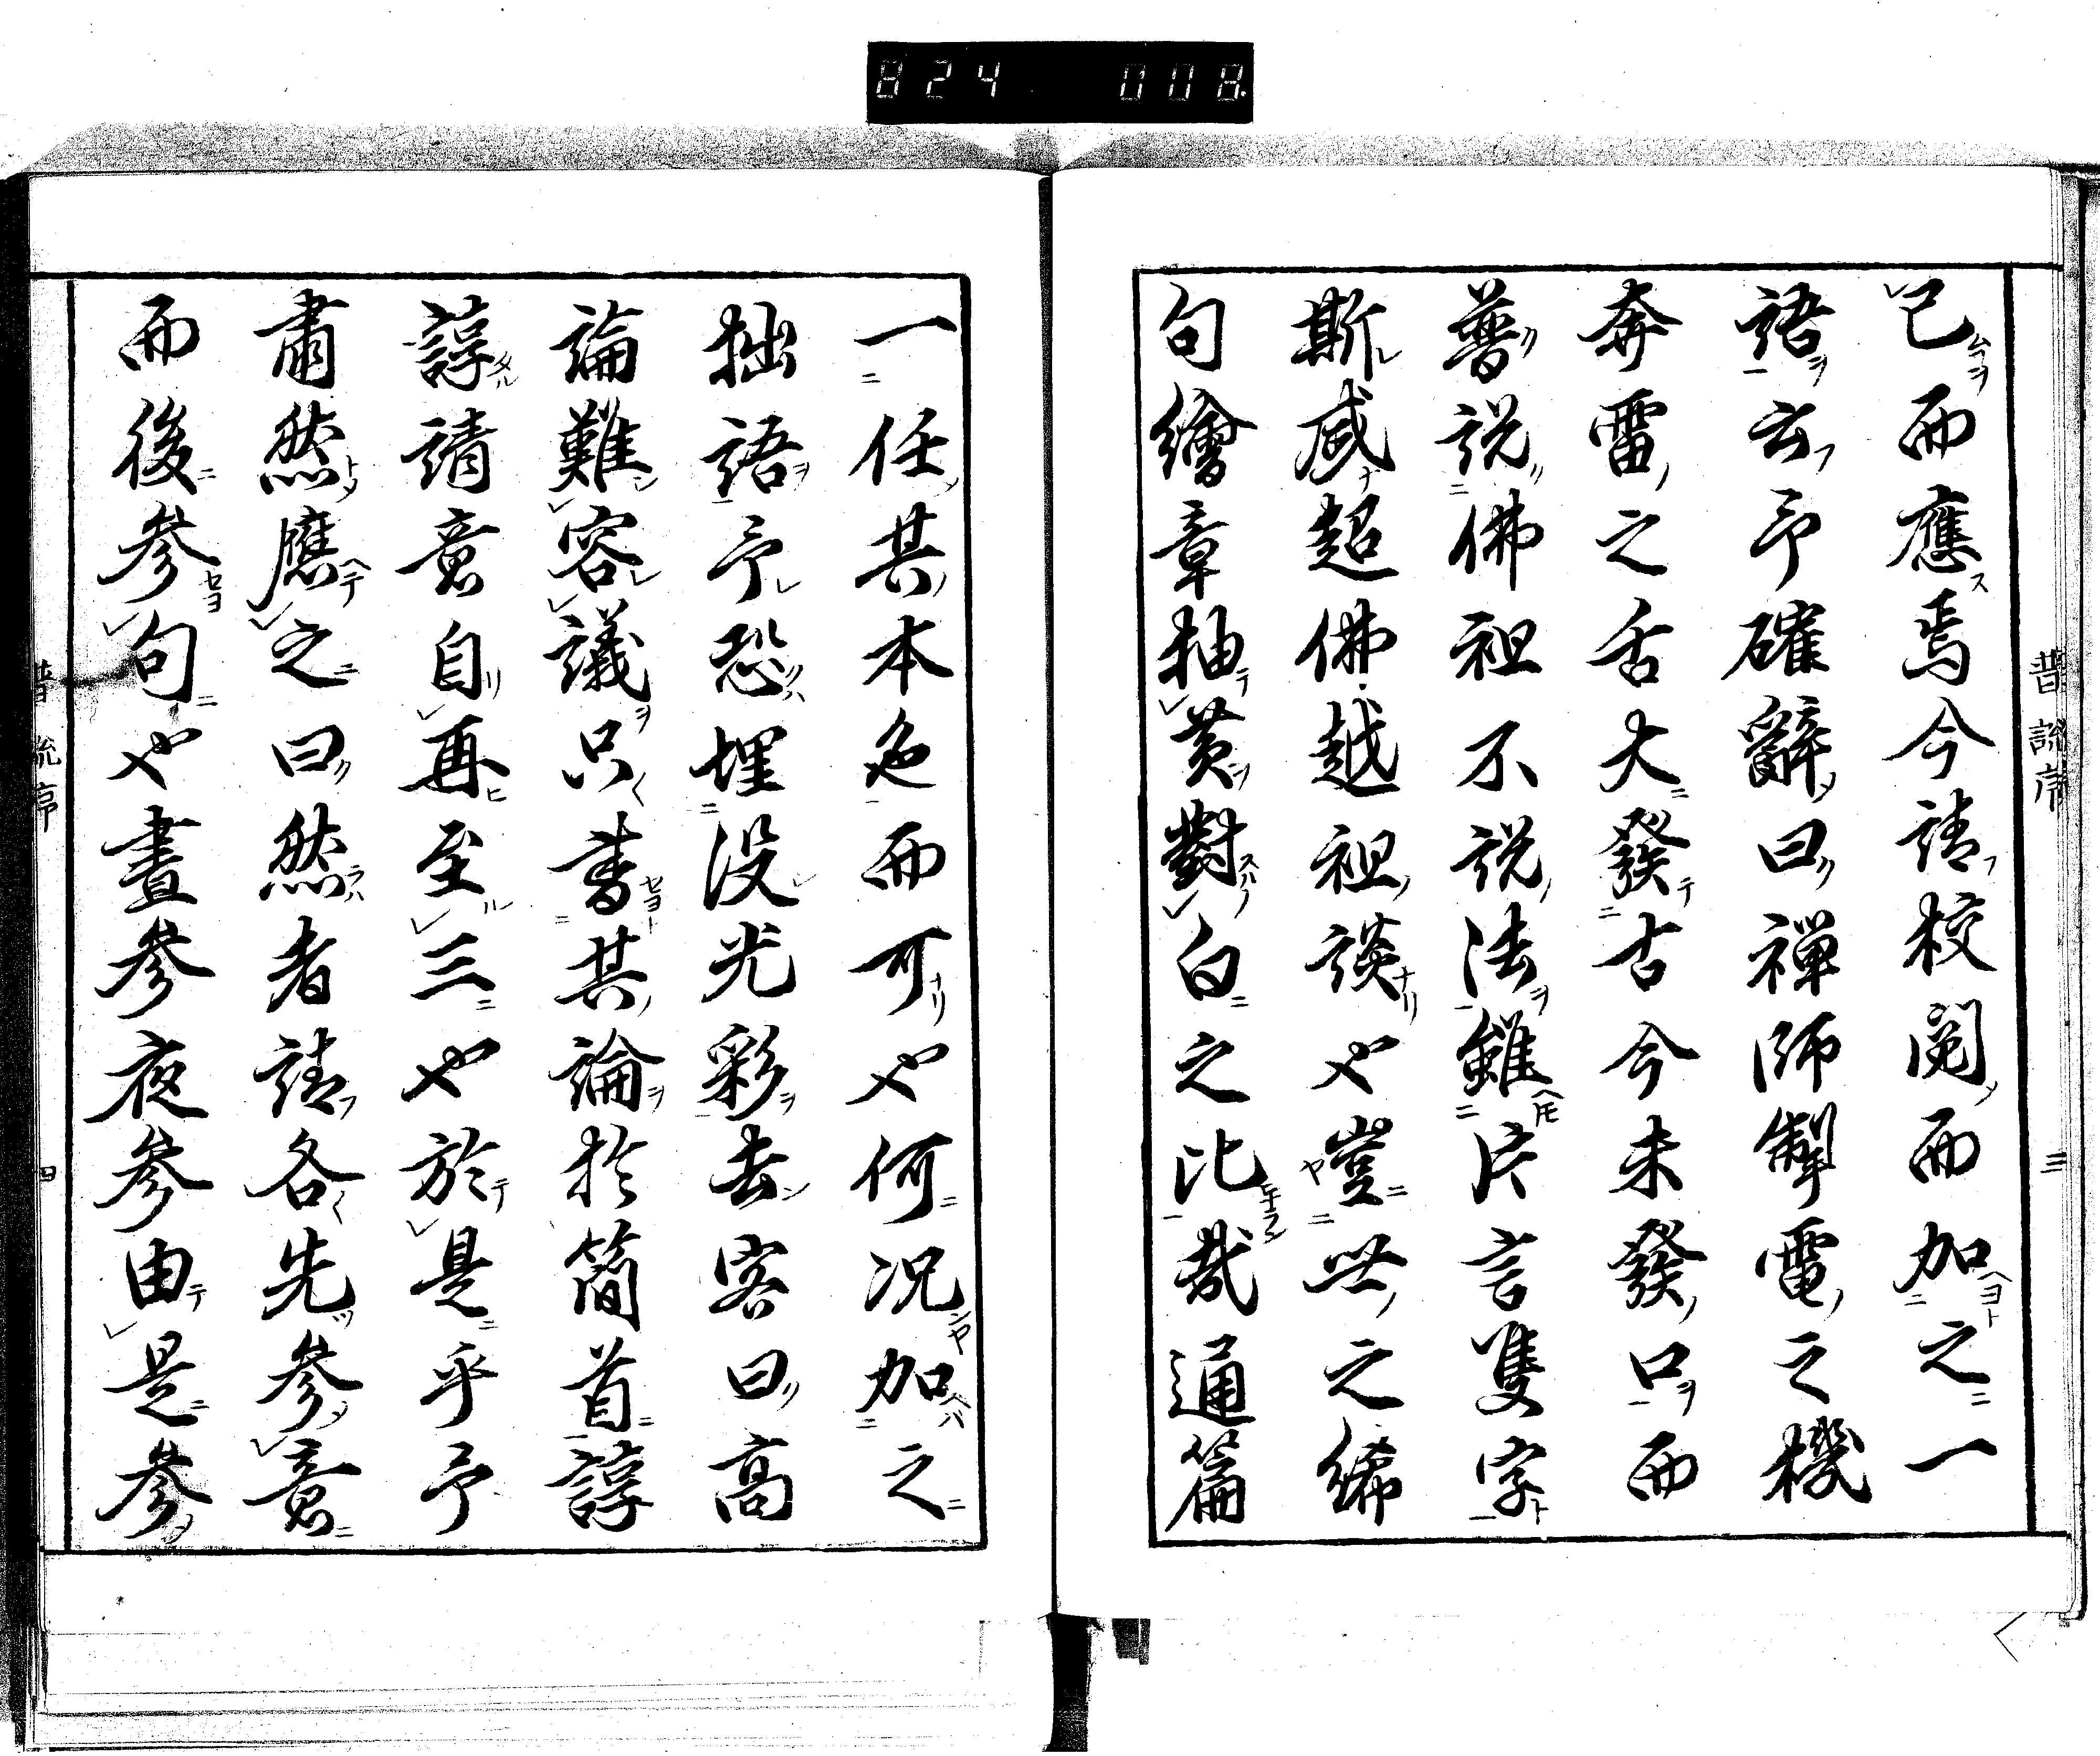 824 008
普説序 三
已而應焉今請校閲而加之一
語云予確辭曰禪師掣電之機
奔雷之舌大發古今未發口而
普説佛祖不説法雖片言隻字
斯咸超佛越祖談也豈世之絺
句繪章抽黄對白之比哉通篇
一任其本色而可也何況加之
拙語予恐埋没光彩去客曰高
論難容議只書其論於簡首諄
諄請意自再至三也於是乎予
肅然應之曰然者請各先參意
而後參句也晝參夜參由是參
普説序 四